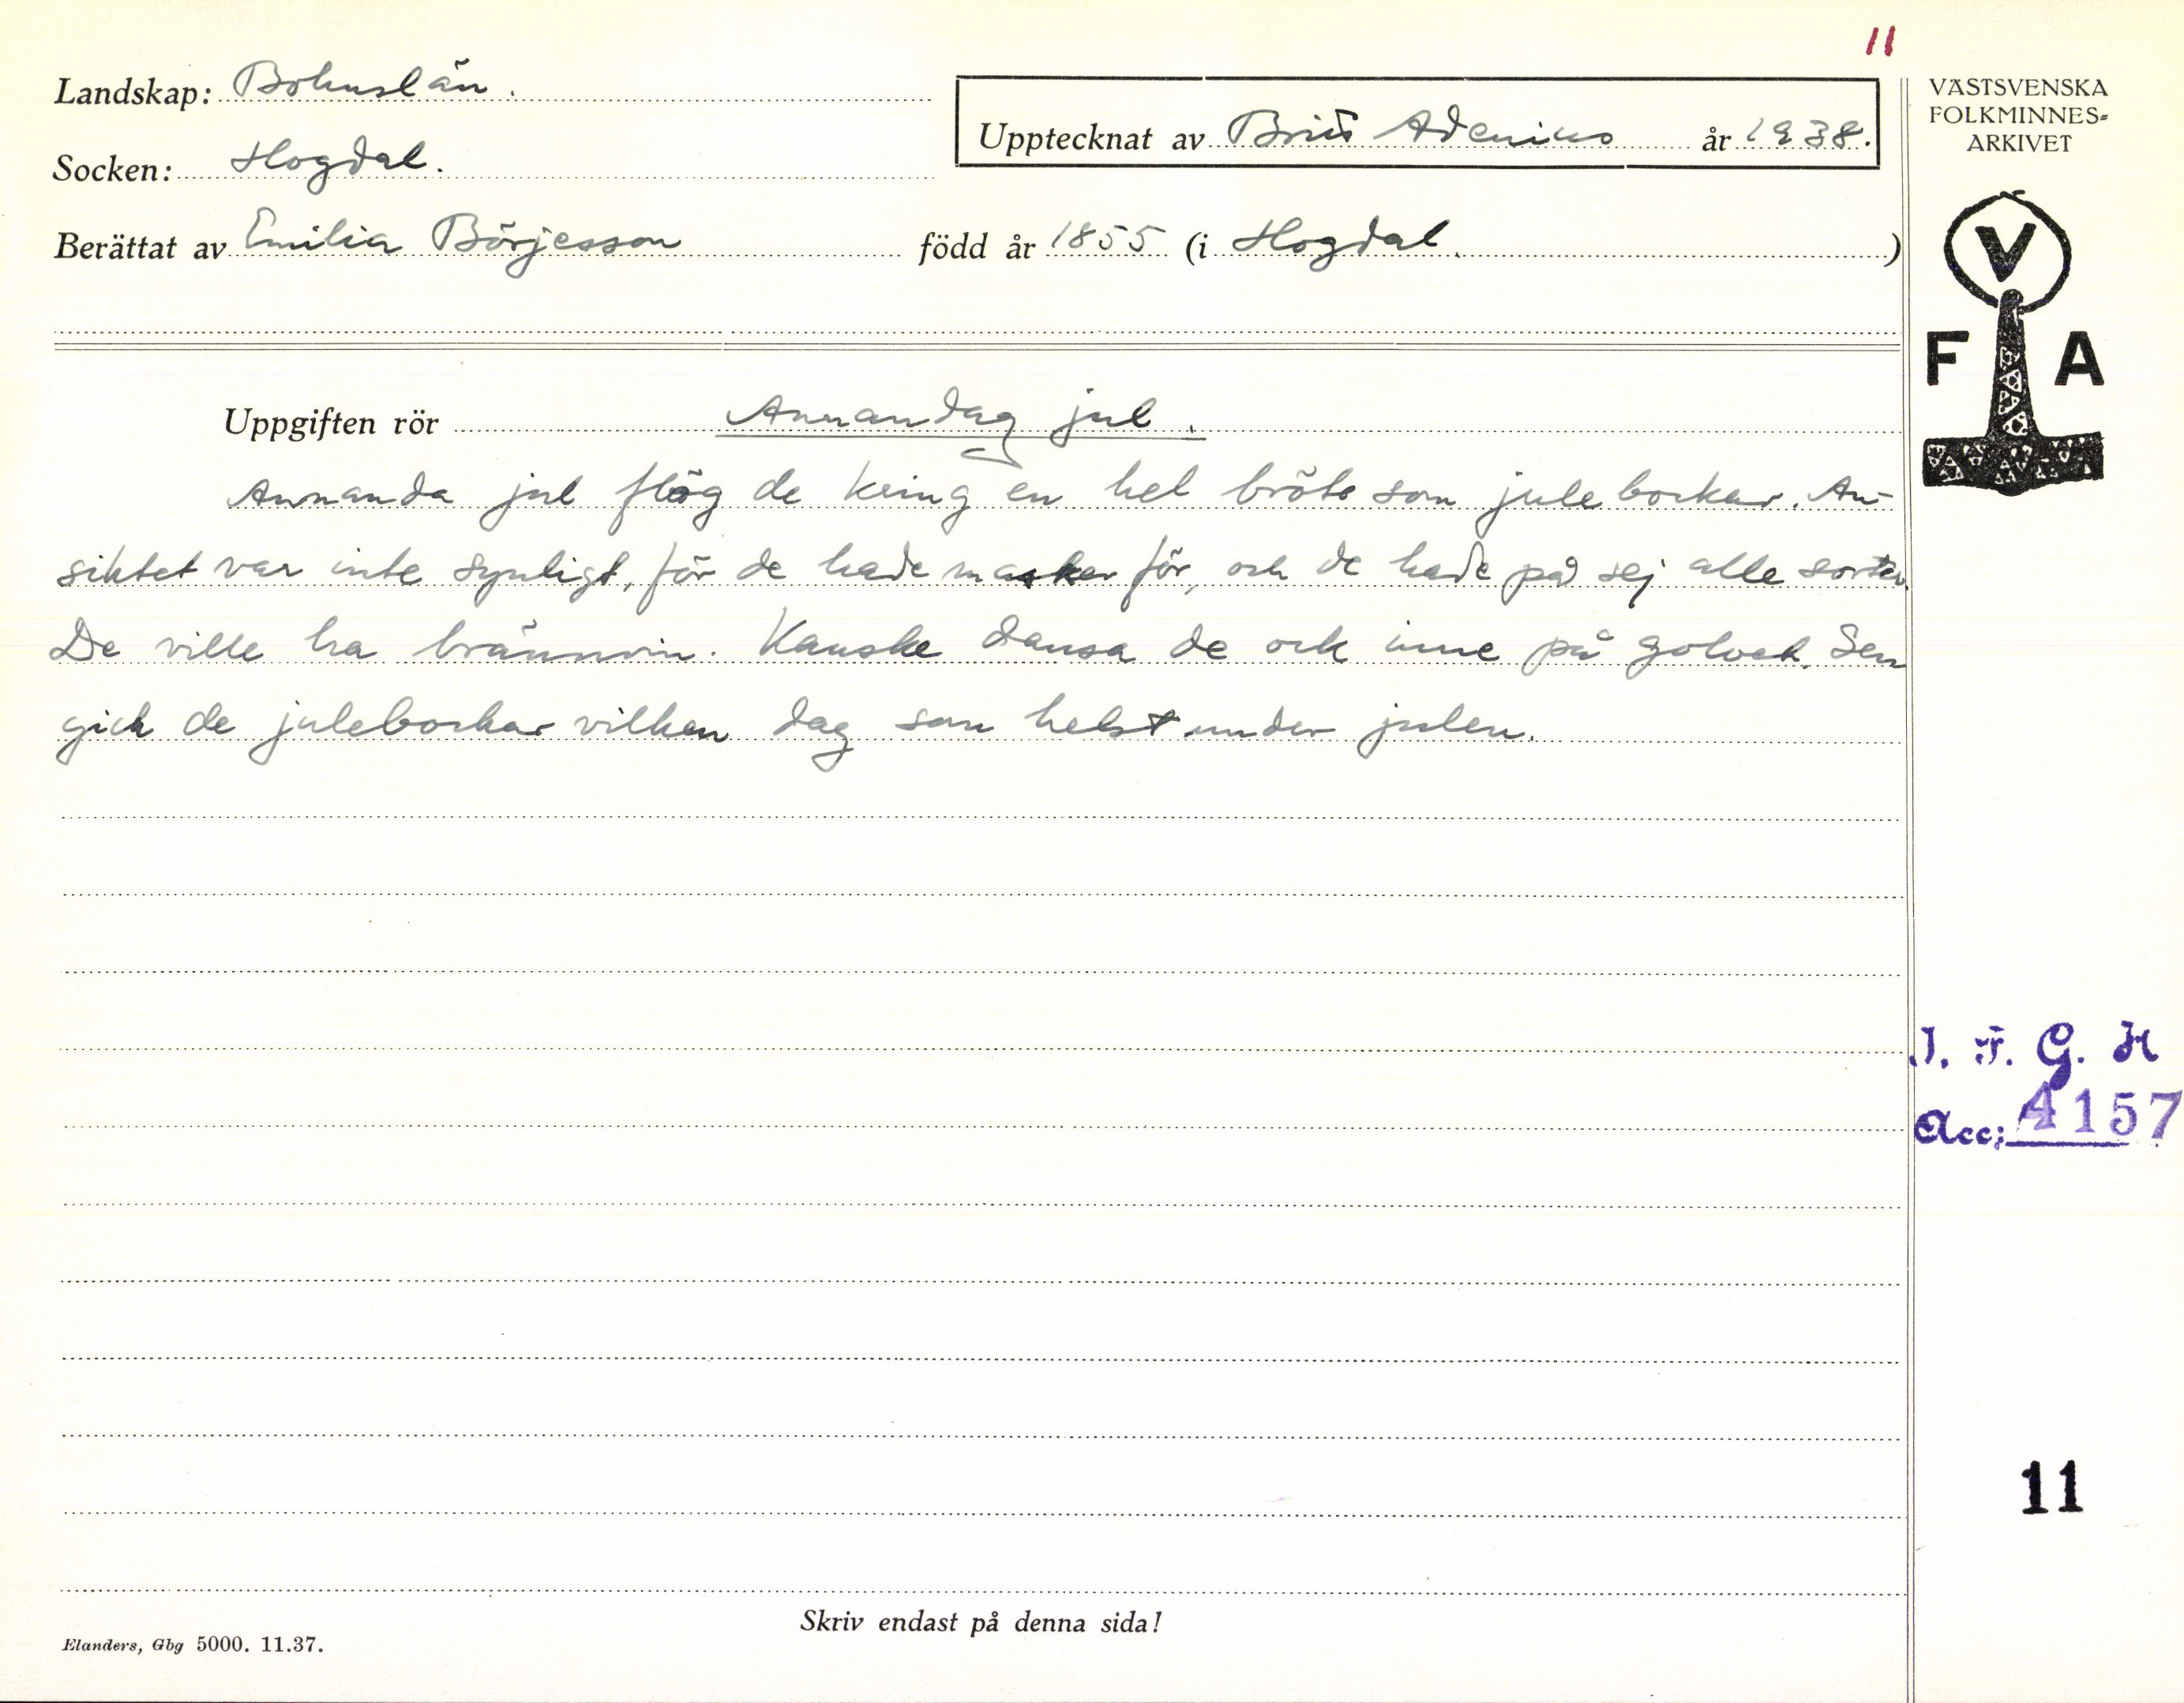 11
Landskap: Bohuslän.
Upptecknat av Britt Adenius år 1938.
Socken: Hogdal.
Berättat av Emilia Börjesson född år 1855 (i Hogdal. )
VÄSTSVENSKA
FOLKMINNES=
ARKIVET
V
F A
Uppgiften rör Annandag jul.
Annanda jul flög de kring en hel bröte som julebockar. An-
siktet var inte synligt, för de hade masker för, och de hade på sej alle sorter.
De ville ha brännvin. Kanske dansa de ock inne på golvet. Sen
gick de julebockar vilken dag som helst under julen.
I. F. G. H
Acc; 4157
11
Skriv endast på denna sida!
Elanders, Gbg 5000. 11.37.